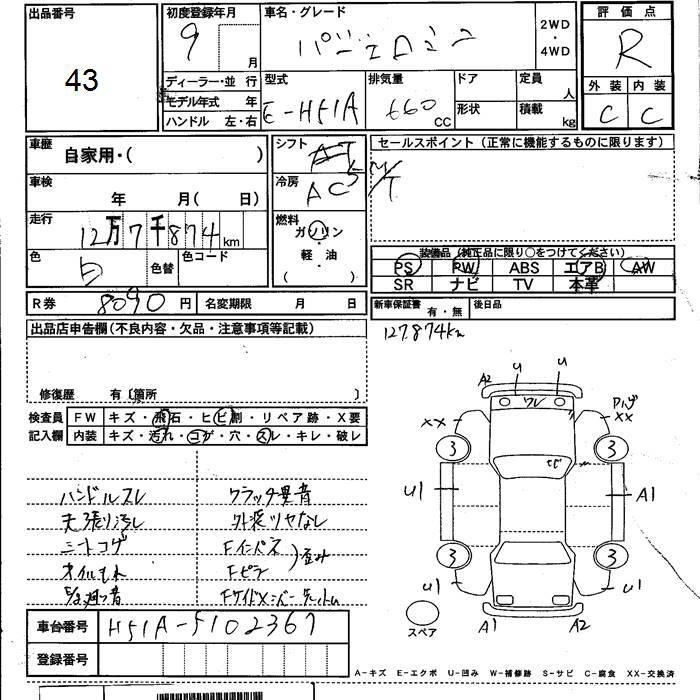 出品番号
43
初度登録年月
9 月
車名・グレード
パジェロミニ
2WD・4WD
評価点
R
外装 内装
C C
ディーラー・並行
モデル年式 年
ハンドル 左・右
型式
E-H51A
排気量
660 CC
ドア
形状
定員 人
積載 kg
車歴
自家用・( )
シフト
AT 5
冷房
AC
セールスポイント(正常に機能するものに限ります)
M/T
車検
年 月( 日)
走行
12万7千874 km
燃料
ガソリン・軽油・( )
色
白
色替
色コード
装備品(純正品に限り○をつけてください)
PS PW ABS エアB AW
SR ナビ TV 本革
R券 8090円
名変期限 月 日
新車保証書 有・無
後日品
127,874km
出品店申告欄(不良内容・欠品・注意事項等記載)
修復歴 有〔箇所 〕
検査員記入欄
FW キズ・飛石・ヒビ割・リペア跡・X要
内装 キズ・汚れ・コゲ・穴・スレ・キレ・破レ
ハンドルスレ
クラッチ異音
天張り汚し
外装ツヤなし
シートコゲ
Fインパネ
オイルもれ
Fピラ
歪み
E/g廻り音
Fサイドメンバー
A2 U U
ワレ
XX
XX
3 3
U1
A1
3 3
U1
U1
A1 A2
スペア
車台番号
H51A-5102367
登録番号
A-キズ E-エクボ U-凹み W-補修跡 S-サビ C-腐食 XX-交換済